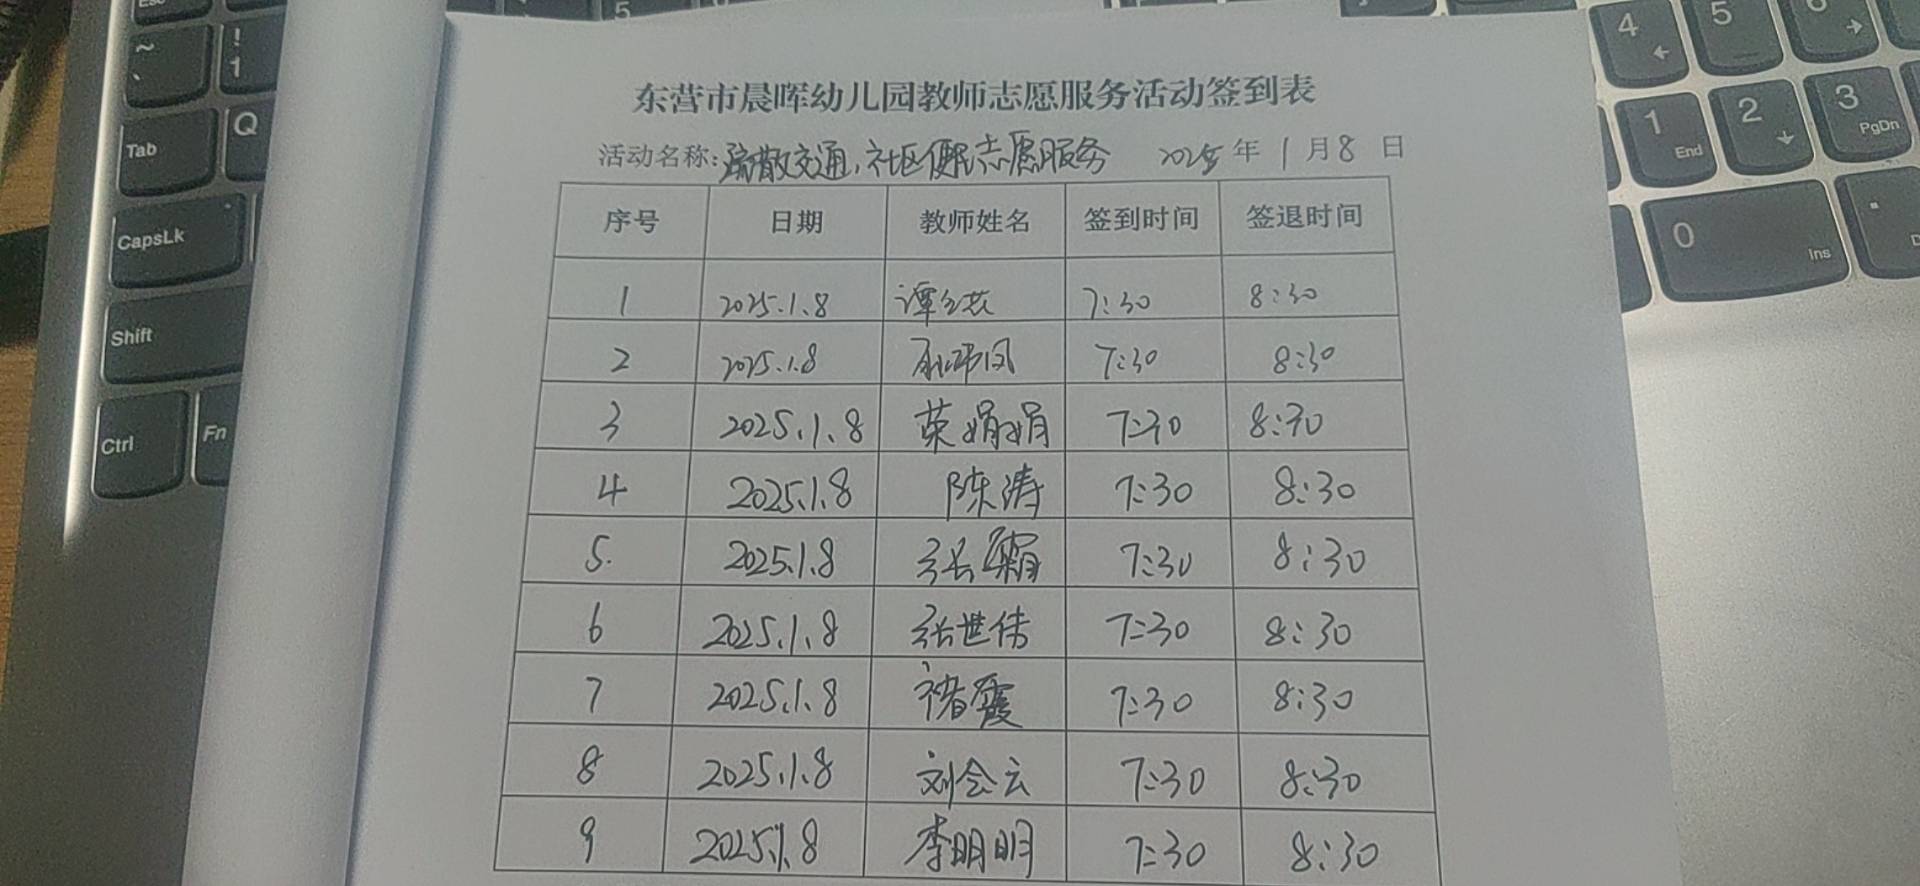 东营市晨晖幼儿园教师志愿服务活动签到表
活动名称:疏散交通,社区便民志愿服务 2025年1月8日
序号 日期 教师姓名 签到时间 签退时间
1 2025.1.8 谭 7:30 8:30
2 2025.1.8 7:30 8:30
3 2025.1.8 荣娟娟 7:30 8:30
4 2025.1.8 陈涛 7:30 8:30
5. 2025.1.8 张霜 7:30 8:30
6 2025.1.8 张世伟 7:30 8:30
7 2025.1.8 褚霞 7:30 8:30
8 2025.1.8 刘会云 7:30 8:30
9 2025.1.8 李明明 7:30 8:30
Esc
5
~
、
!
1
Tab
Q
CapsLk
Shift
Ctrl
Fn
4
5
6
1
End
2
3
PgDn
0
Ins